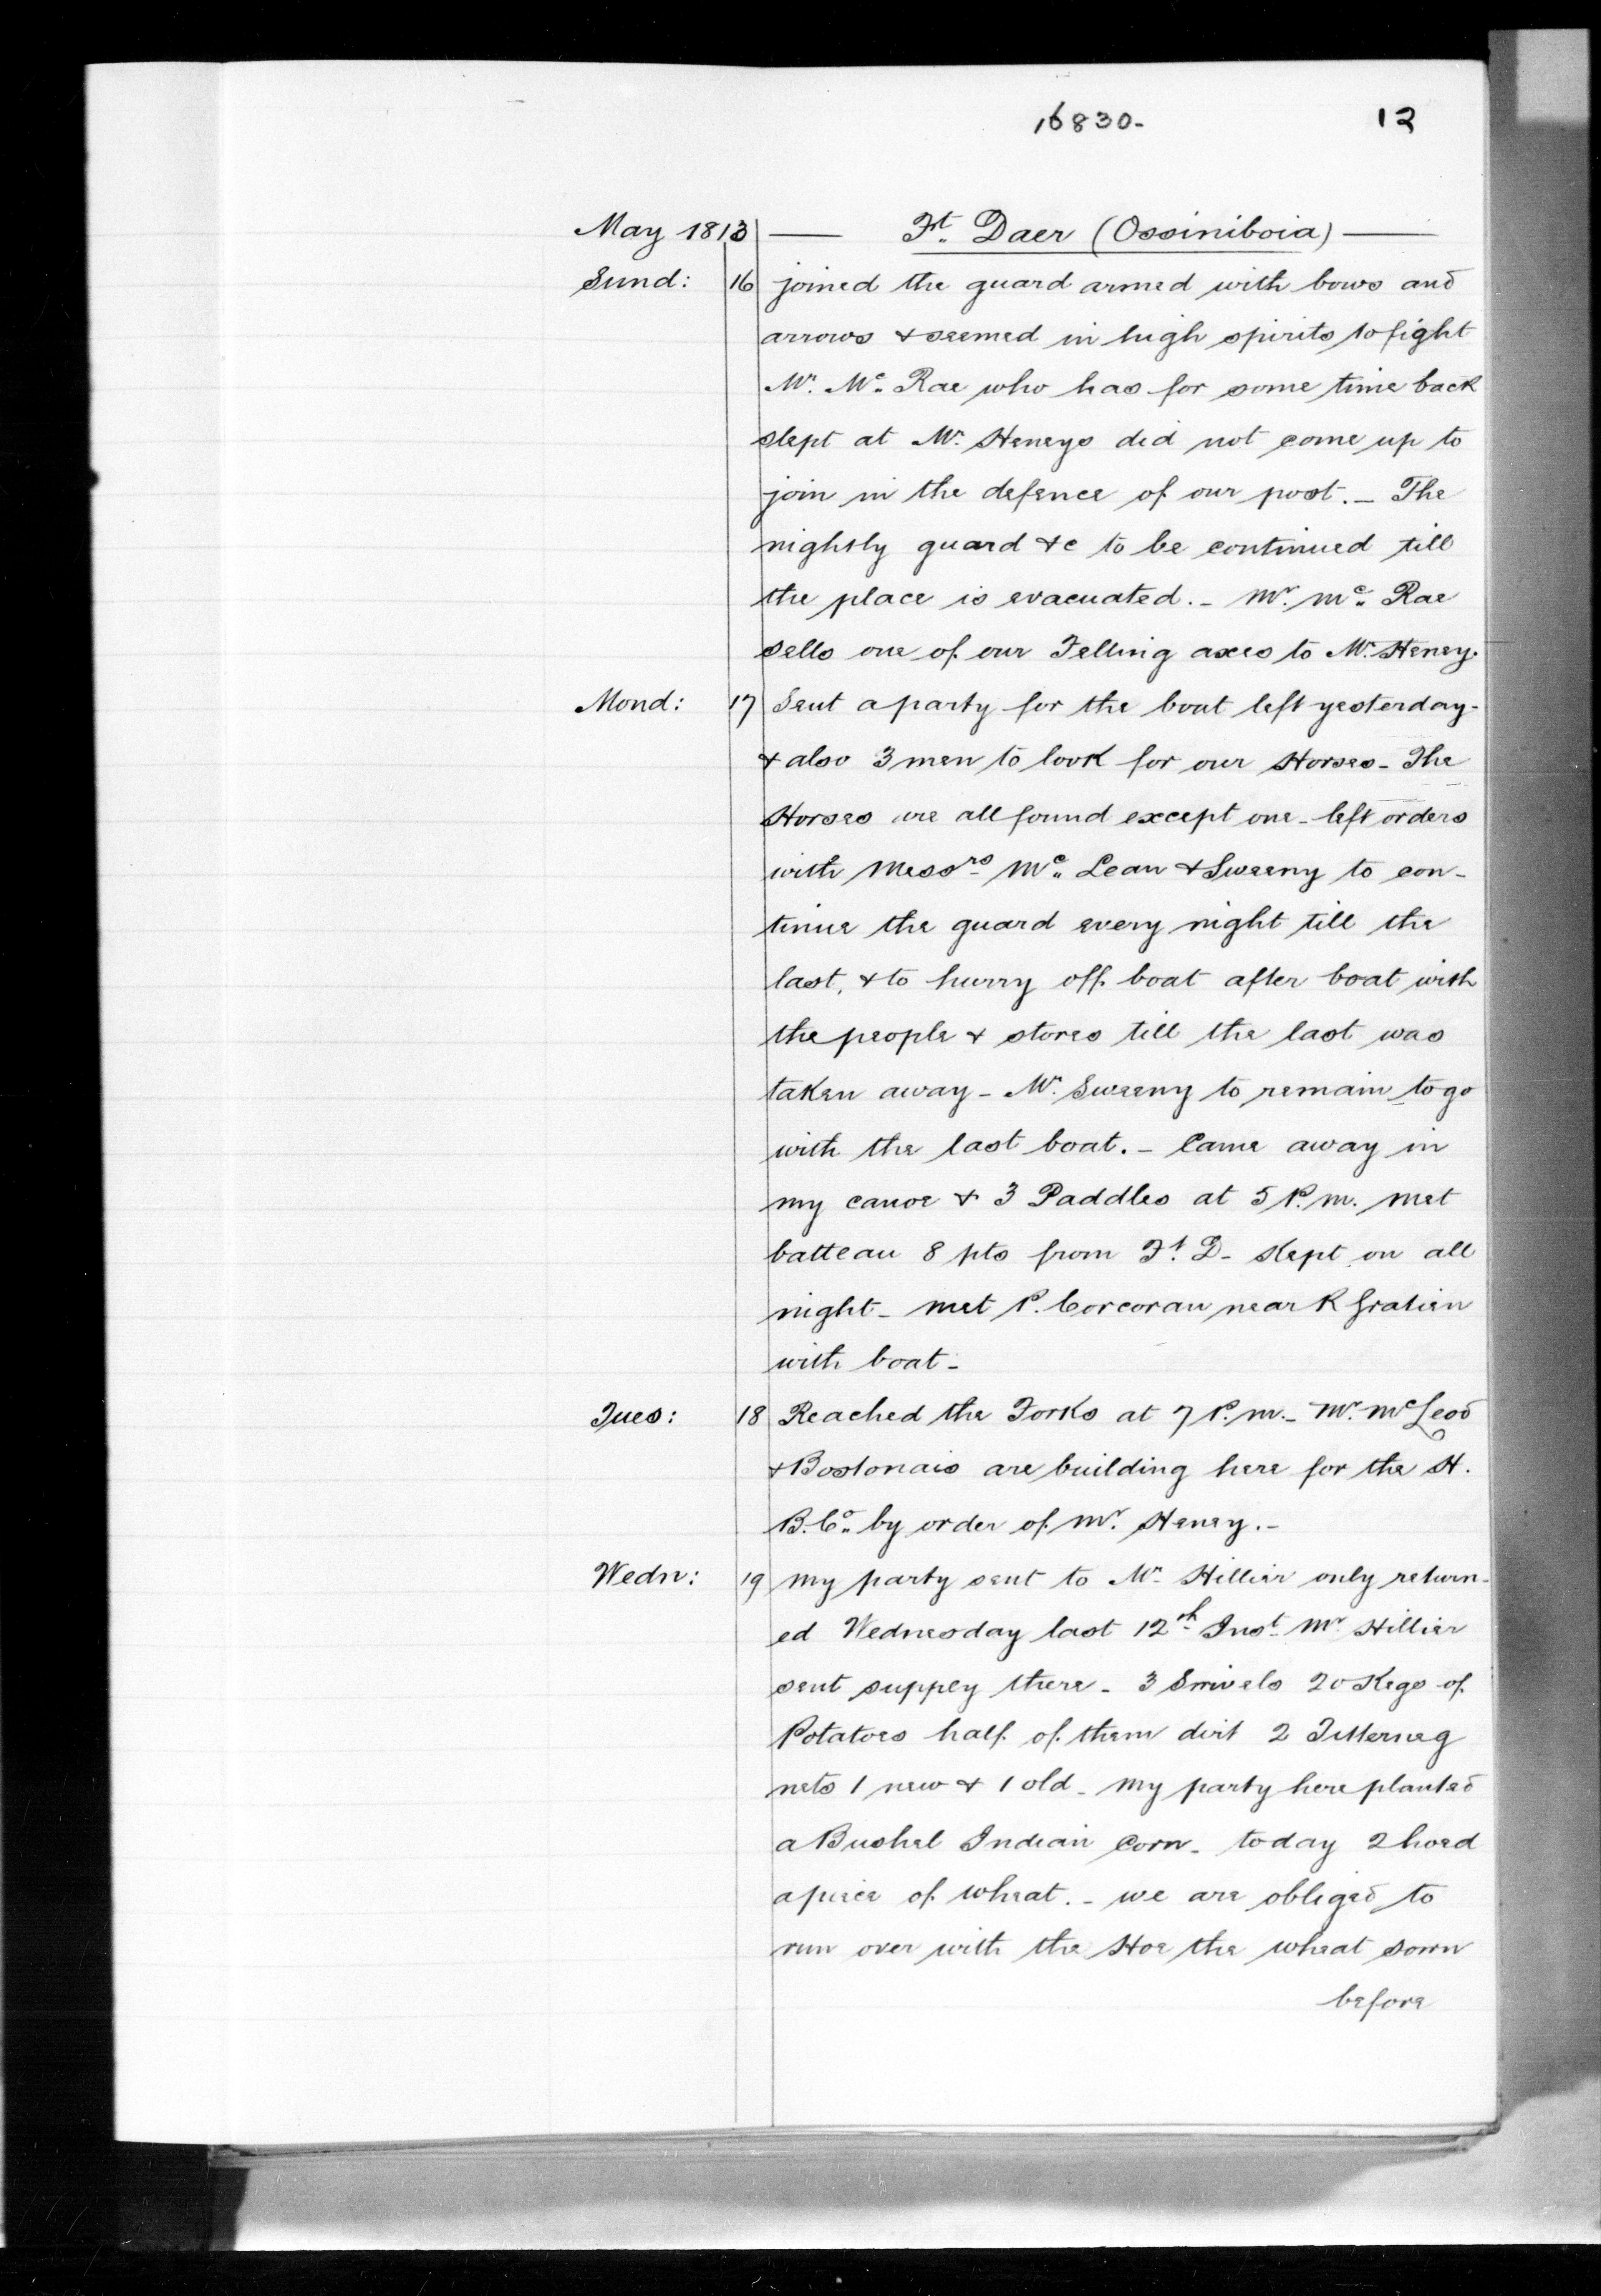 16830- 12
May 1813 — Ft. Daer (Ossiniboia) —
Sund: 16 joined the guard armed with bows and
arrows & seemed in high spirits to fight
Mr. Mc. Rae who has for some time back
slept at Mr. Heneys did not come up to
join in the defence of our post. - The
nightly guard &c to be continued till
the place is evacuated. - Mr. Mc. Rae
sells one of our Felling axes to Mr. Heney.
Mond: 17 Sent a party for the boat left yesterday-
& also 3 men to look for our Horses - The
Horses are all found except one - left orders
with Messrs Mc. Lean & Sweeny to con-
tinue the guard every night till the
last, & to hurry off boat after boat with
the people & stores till the last was
taken away - Mr. Sweeny to remain to go
with the last boat. - Came away in
my canoe & 3 Paddles at 5 P.m. met
batteau 8 pts from Ft. D - Kept on all
night - met P. Corcoran near R Gratien
with boat -
Tues: 18 Reached the Forks at 7 P.m. - Mr. McLeod
& Bostonais are building here for the H.
B. Co. by order of Mr. Heney. -
Wedn: 19 my party sent to Mr. Hillier only return-
ed Wednesday last 12th Inst. Mr Hillier
sent supply there - 3 Swivels 20 Kegs of
Potatoes half of them dirt 2 Titterneg
nets 1 new & 1 old - my party here planted
a Bushel Indian Corn - today 2 hoed
a piece of wheat. - we are obliged to
run over with the Hoe the wheat sown
before